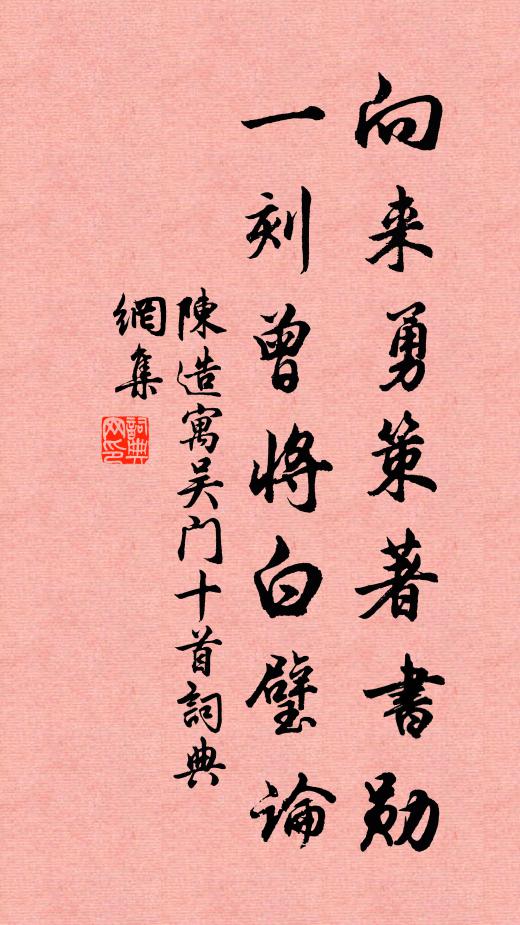 向来勇策著書勋
一刻曾將白璧論
陳造寓吴门十首詞典
網集
詞典
网印